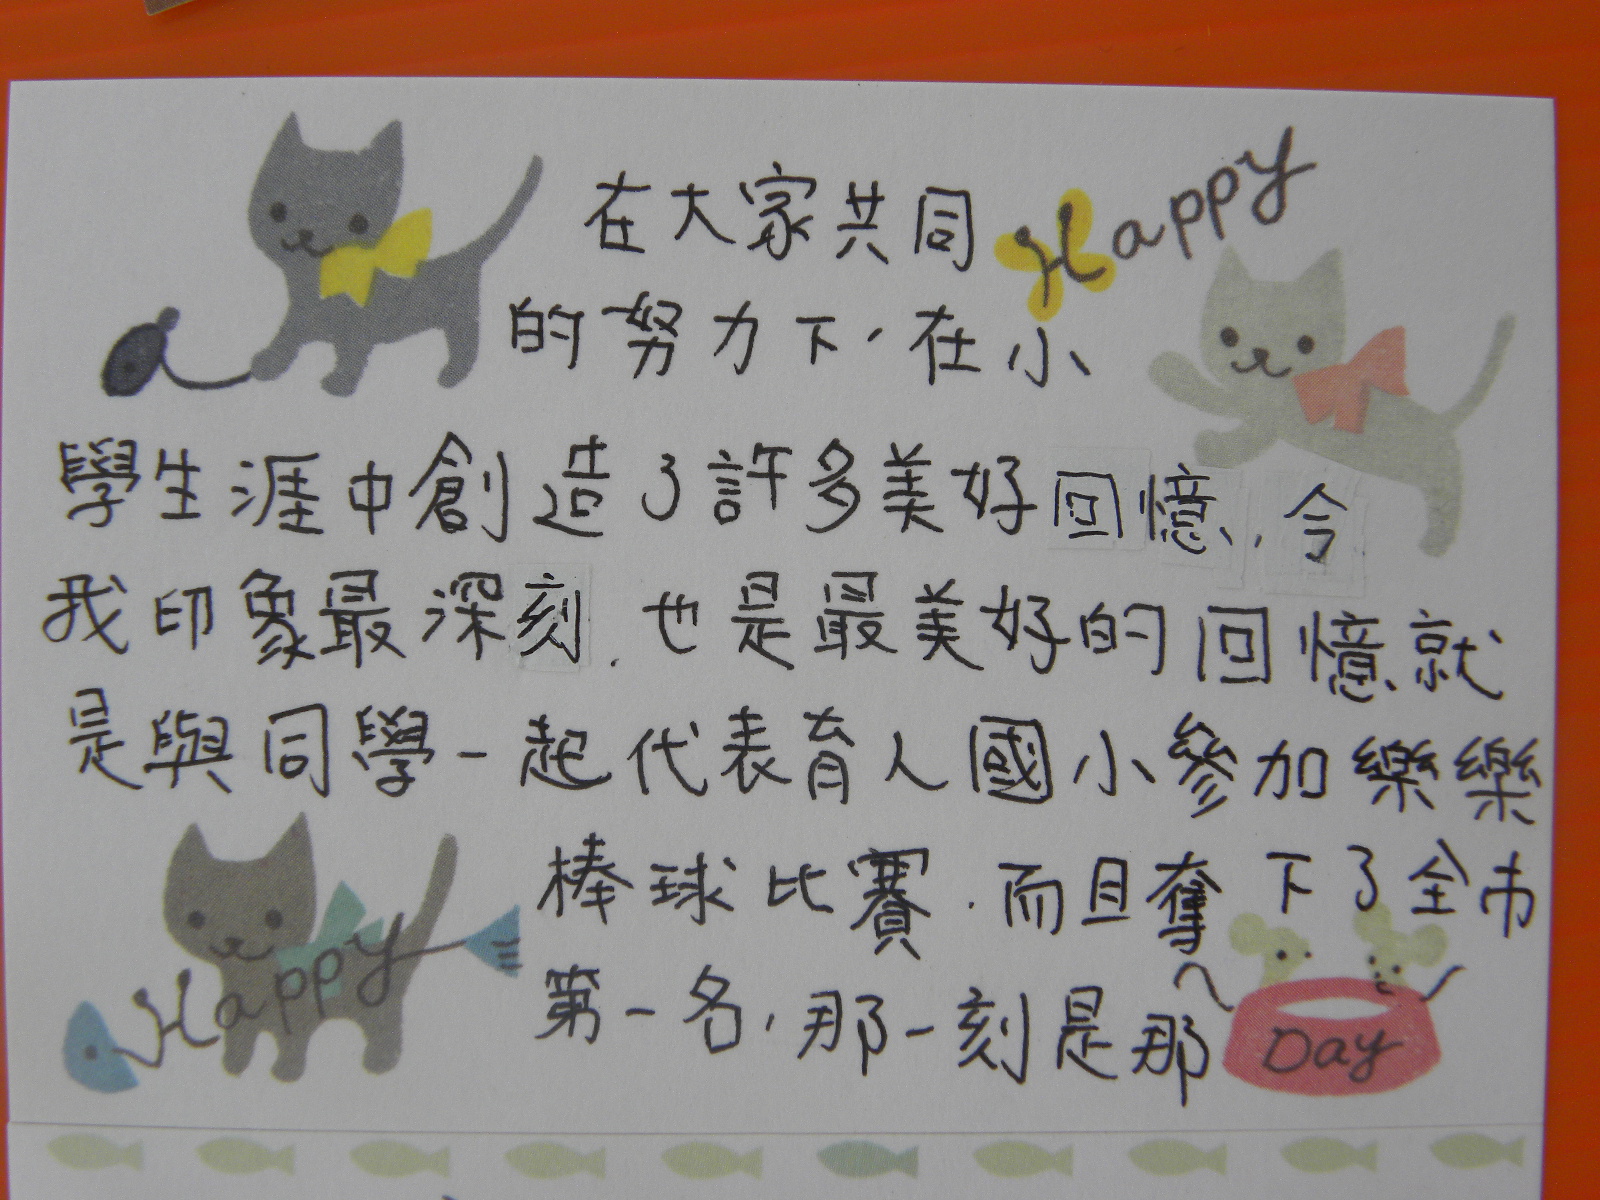 在大家共同
Happy
的努力下，在小
學生涯中創造了許多美好回憶，令
我印象最深刻，也是最美好的回憶就
是與同學一起代表育人國小參加樂樂
棒球比賽，而且奪下了全市
Happy
第一名，那一刻是那
Day